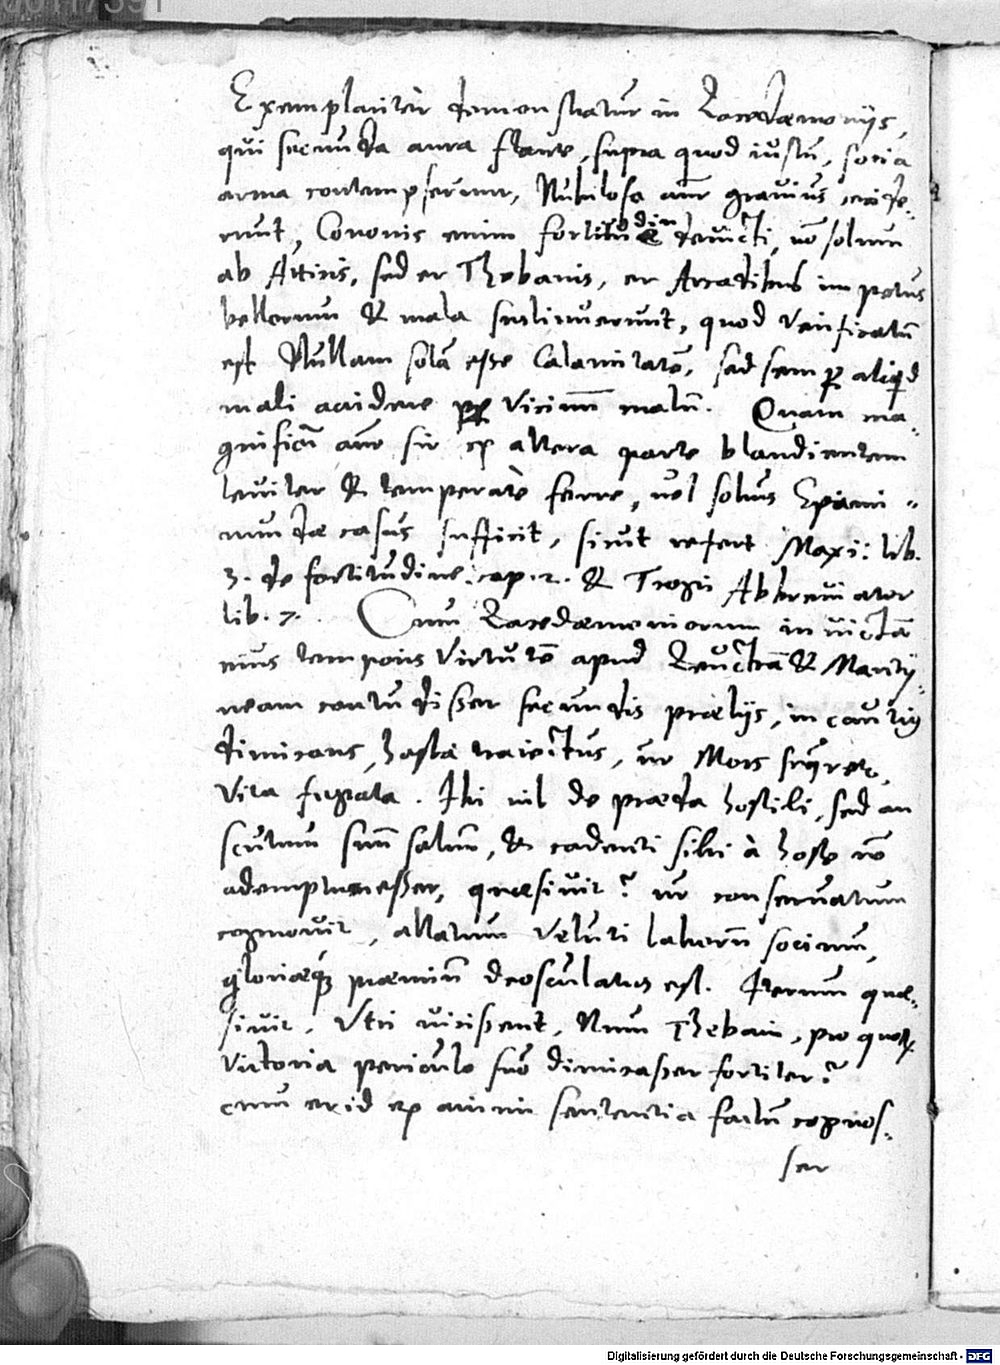 00117391
Exemplariter demonstratur in Lacedæmonijs,
qui secunda aura flante, supra quod iustũ, socia
arma contempserunt, Nubilosa aũt grauius ceide-
runt, Cononis enim fortitudine deuicti, nõ solum
ab Atticis, sed et Thebanis, et Arcadibus impetus
bellorum & mala sustinuerunt, quod verificatũ
est Nullam solã esse Calamitatẽ, sed semp aliqd
mali accidere pp vicinũ malũ. Quam ma-
gnificũ aũt sit ex altera parte blandientem
leuiter & temperatè ferre, uel solius Epami-
nundæ casus sufficit, sicut refert Maxi: lib.
3. de fortitudine. cap. 2. & Trogi Abbreuiator
lib. 7. Cum Lacedæmoniorum inuictã
eius temporis virtutẽ apud Leuctrã & Manty-
neam contudisset secundis prælijs, incautiꝰ
dimicans, hasta traiectus, ut Mors sqret,
vita fugata. Ibi nil de præda hostili, sed an
scutum suũ saluũ, & cadenti sibi à hoste nõ
ademptum esset, quæsiuit? ut conseruatum
cognouit, allatum veluti laborũ socium,
gloriæq præmiũ deosculatus est. Iterum quæ-
siuit, Vtri vicissent, Num Thebani, pro quoꝝ
victoria periculo suo dimicasset fortiter?
cum et id ex animi sententia factũ cognos-
set
Digitalisierung gefördert durch die Deutsche Forschungsgemeinschaft - DFG